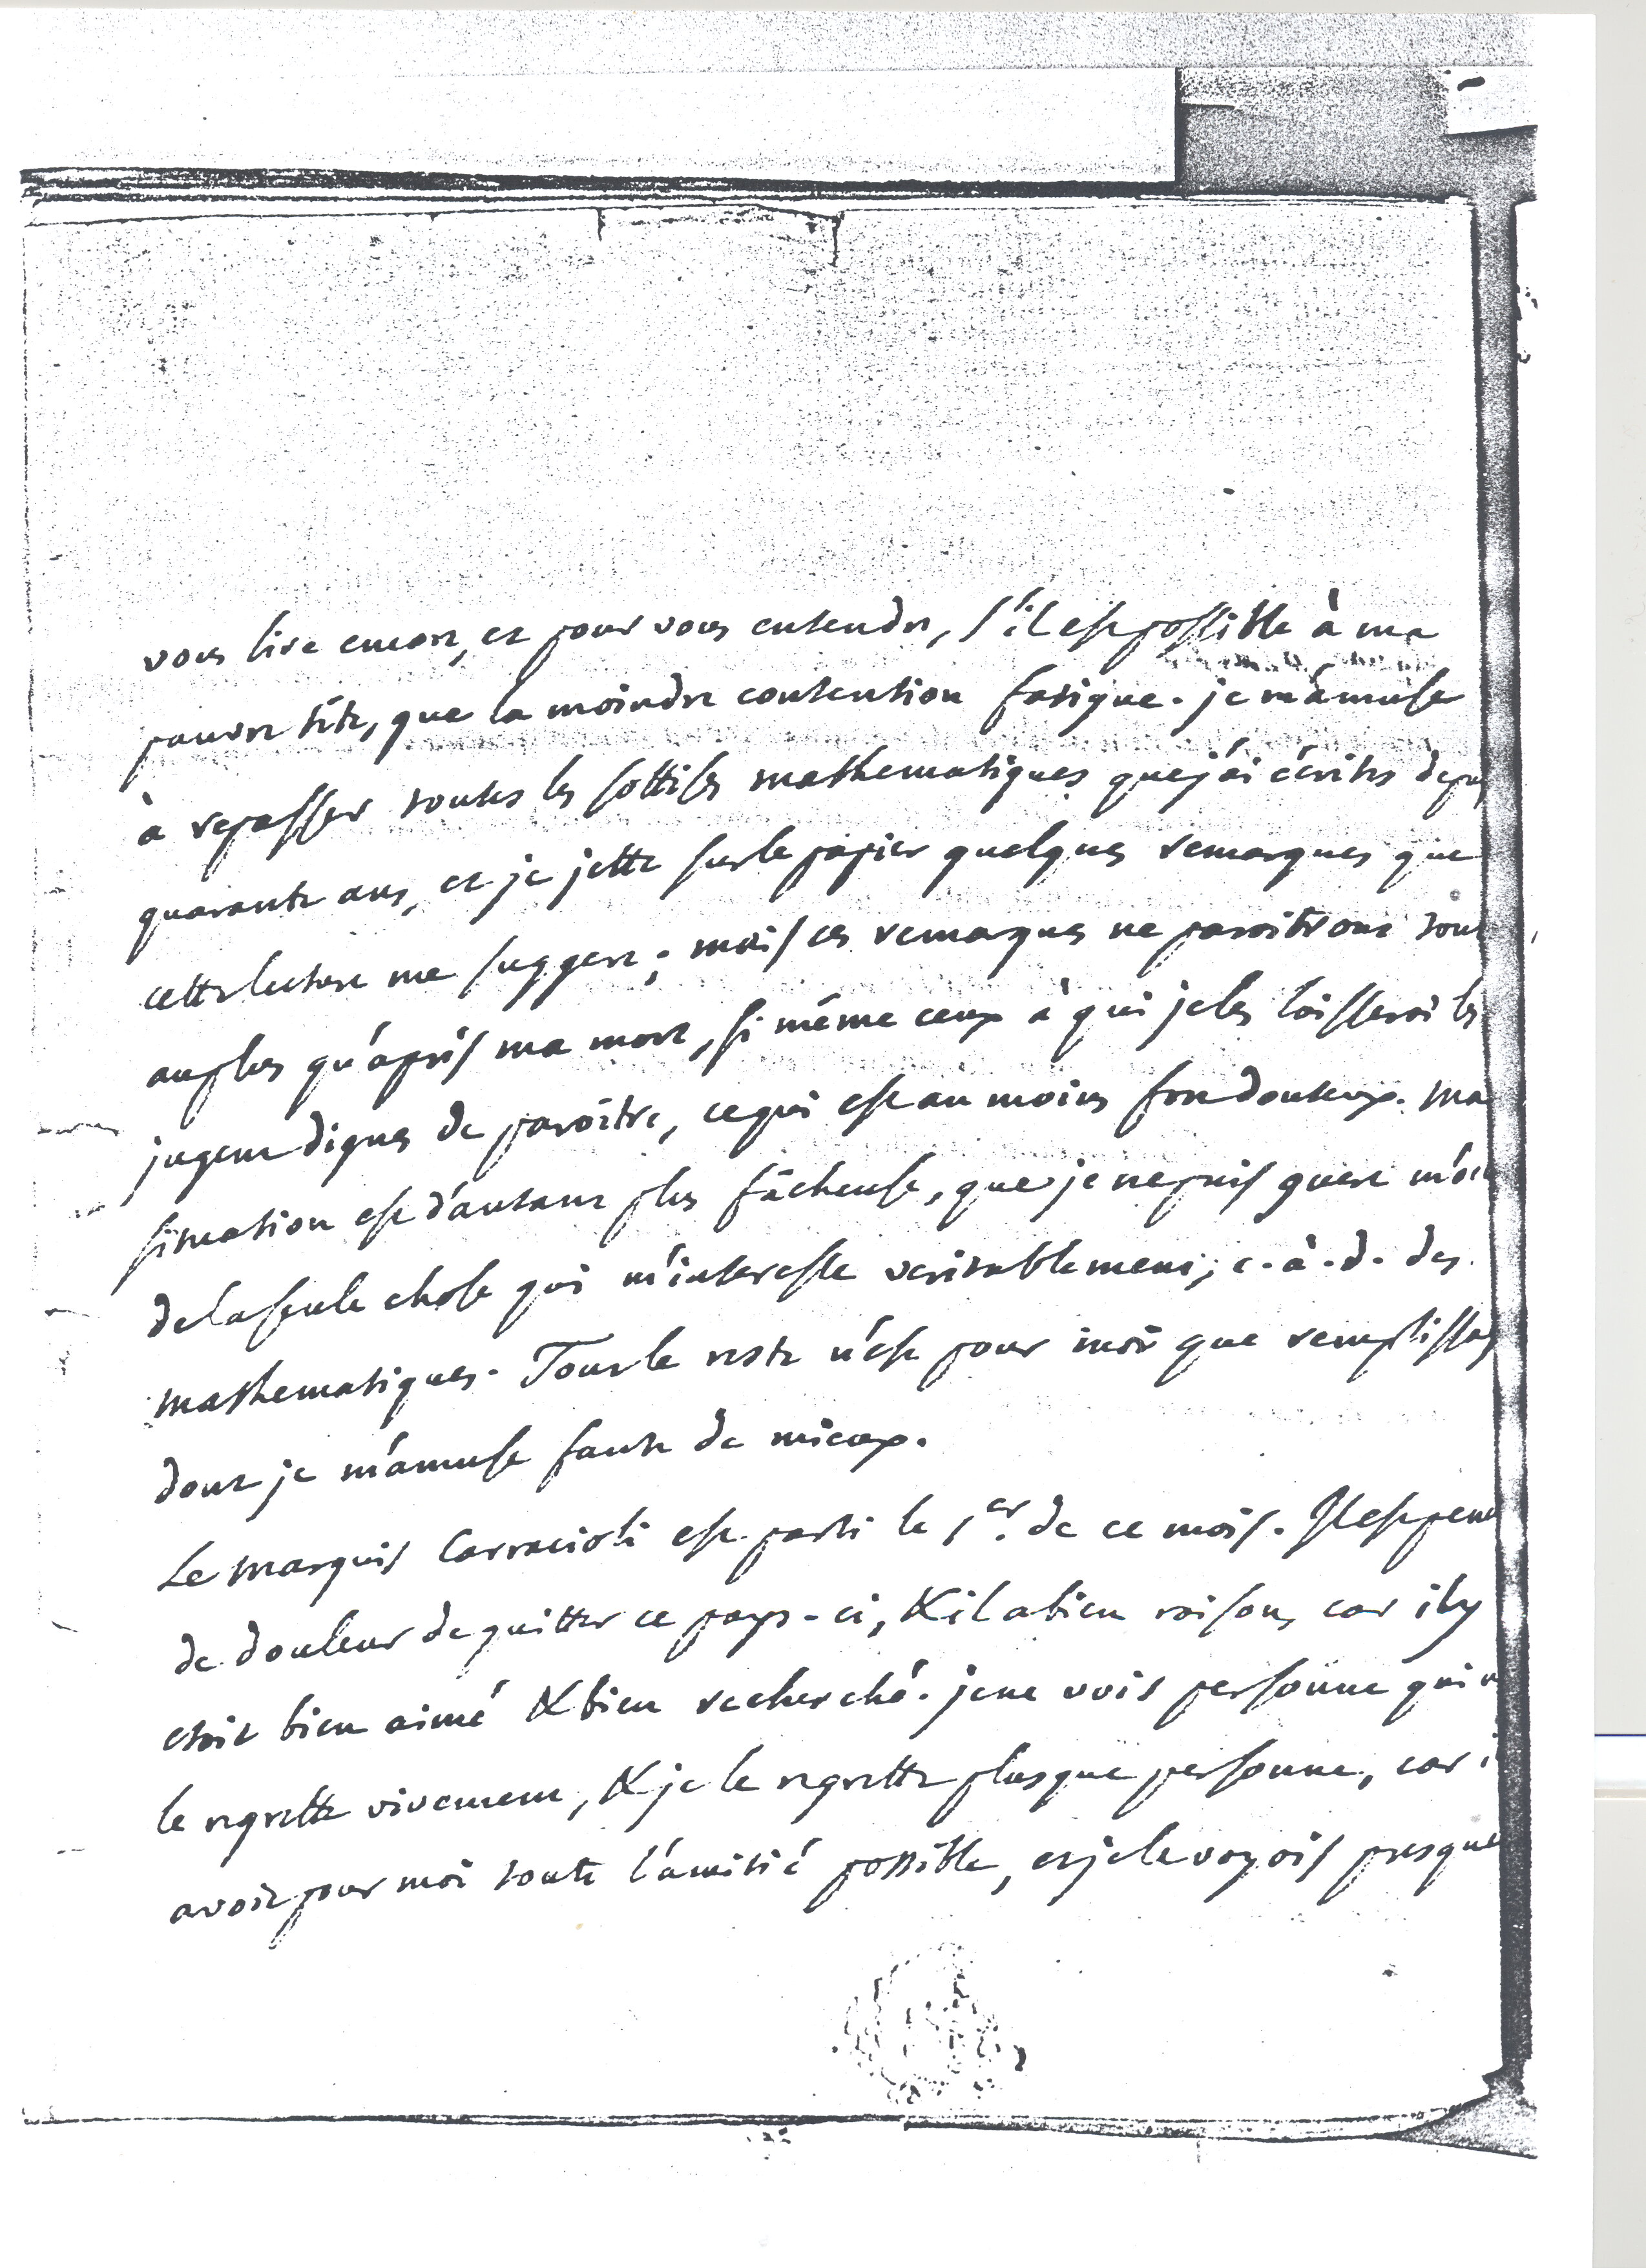 vous lire encore, et pour vous entendre, s'il est possible à ma
pauvre tête, que la moindre contention fatigue. je m'amuse
à repasser toutes les sottises mathematiques que j'ai écrites depuis
quarante ans, et je jette sur le papier quelques remarques que
cette lecture me suggere; mais ces remarques ne paroitront tout
au plus qu'après ma mort, si même ceux à qui je les laisserai les
jugent dignes de paroitre, ce qui est au moins fort douteux. Ma
situation est d'autant plus fâcheuse, que je ne puis guere m'oc
de la seule chose qui m'interesse veritablement, c. à. d. des
mathematiques. Tout le reste n'est pour moi que remplissag
dont je m'amuse faute de mieux.
Le marquis Carracioli est parti le 1er. de ce mois. Il est pene
de douleur de quitter ce pays-ci, & il a bien raison, car il y
etoit bien aimé & bien recherché. je ne vois personne qui n
le regrette vivement, & je le regrette plus que personne, car i
avoit pour moi toute l'amitié possible, et je le voyois presque